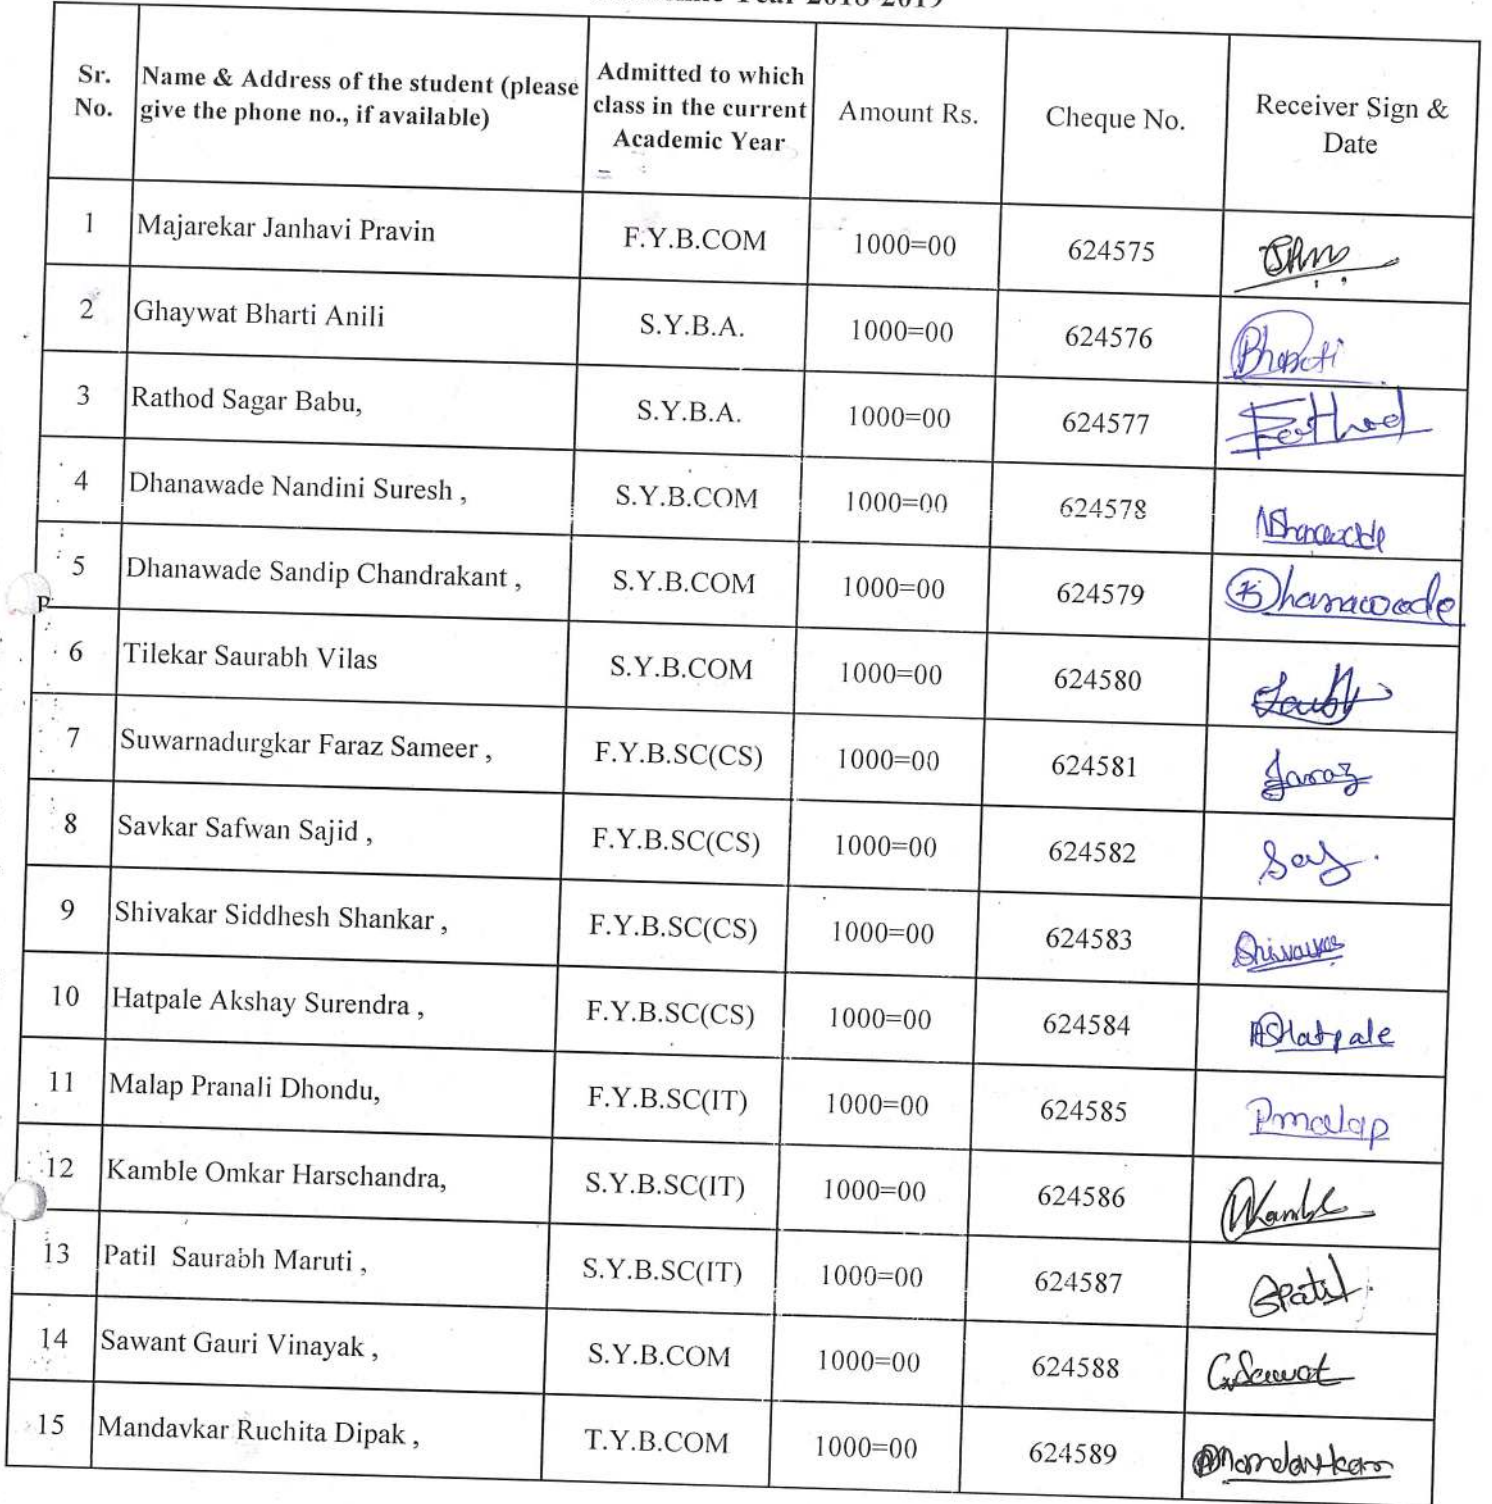 Year 2018-2019
Sr. No. Name & Address of the student (please give the phone no., if available) Admitted to which class in the current Academic Year Amount Rs. Cheque No. Receiver Sign & Date
1 Majarekar Janhavi Pravin F.Y.B.COM 1000=00 624575
2 Ghaywat Bharti Anili S.Y.B.A. 1000=00 624576 Bharati
3 Rathod Sagar Babu, S.Y.B.A. 1000=00 624577 Rathod
4 Dhanawade Nandini Suresh , S.Y.B.COM 1000=00 624578 NDhanawade
5 Dhanawade Sandip Chandrakant , S.Y.B.COM 1000=00 624579 Dhanawade
P
6 Tilekar Saurabh Vilas S.Y.B.COM 1000=00 624580
7 Suwarnadurgkar Faraz Sameer , F.Y.B.SC(CS) 1000=00 624581 Faraz
8 Savkar Safwan Sajid , F.Y.B.SC(CS) 1000=00 624582
9 Shivakar Siddhesh Shankar , F.Y.B.SC(CS) 1000=00 624583 Shivakar
10 Hatpale Akshay Surendra , F.Y.B.SC(CS) 1000=00 624584 ASHatpale
11 Malap Pranali Dhondu, F.Y.B.SC(IT) 1000=00 624585 Pmalap
12 Kamble Omkar Harschandra, S.Y.B.SC(IT) 1000=00 624586 OKamble
13 Patil Saurabh Maruti , S.Y.B.SC(IT) 1000=00 624587 SPatil
14 Sawant Gauri Vinayak , S.Y.B.COM 1000=00 624588 G.Sawat
15 Mandavkar Ruchita Dipak , T.Y.B.COM 1000=00 624589 Mandavkar